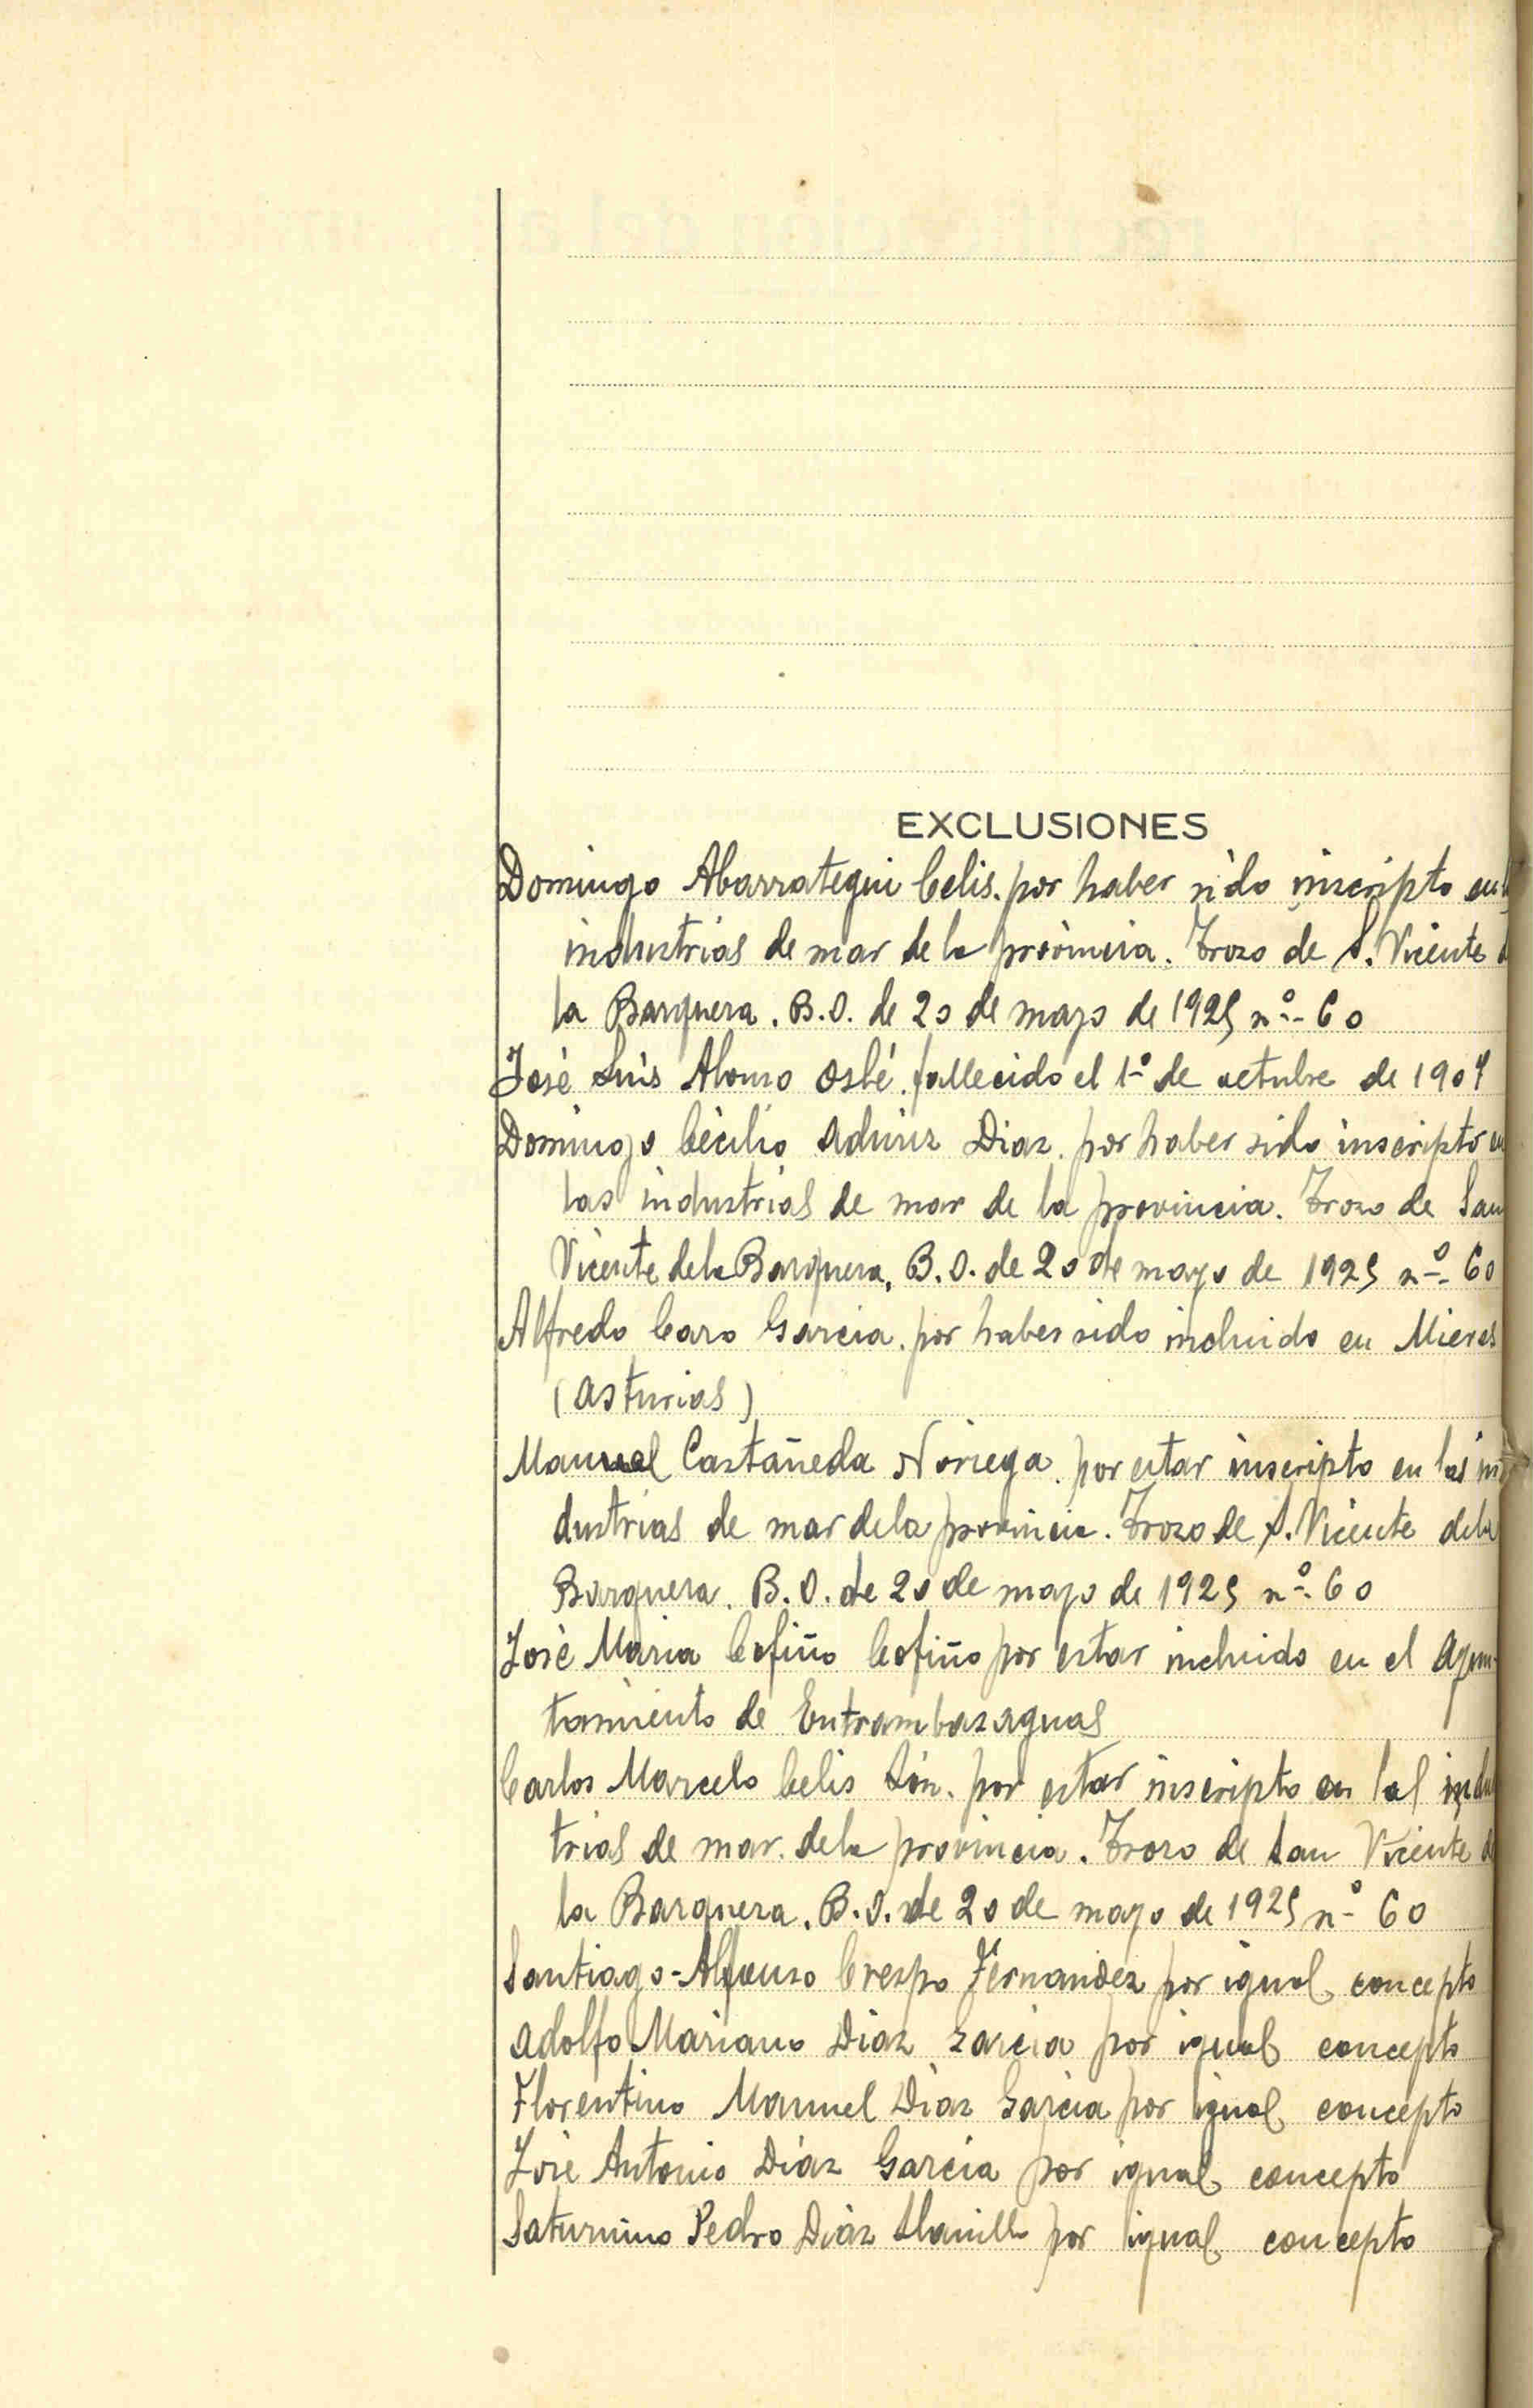 EXCLUSIONES
Domingo Abarrategui Celis. por haber sido inscripto en
industrias de mar de la provincia. Trozo de S. Vicente
la Barquera. B.O. de 20 de mayo de 1925 nº 60
José Luis Alonso por fallecido el 1º de octubre de 1904
Domingo Cecilio Díaz. por haber sido inscripto en
las industrias de mar de la provincia. Trozo de San
Vicente de la Barquera. B.O. de 20 de mayo de 1925 nº 60
Alfredo Caro Garcia. por haber sido incluido en Mieres
(Asturias)
Manuel Castañeda Noriega. por estar inscripto en las in
dustrias de mar de la provincia. Trozo de S. Vicente de la
Barquera. B.O. de 20 de mayo de 1925 nº 60
José Maria Cofiño Cofiño por estar incluido en el Ayun-
tamiento de Entrambasaguas
Carlos Marcelo Celis por estar inscripto en las indus
trias de mar de la provincia. Trozo de San Vicente de
la Barquera. B.O. de 20 de mayo de 1925 nº 60
Santiago-Alfonso Crespo Fernandez por igual concepto
Adolfo Mariano Diaz Garcia por igual concepto
Florentino Manuel Diaz Garcia por igual concepto
José Antonio Díaz García por igual concepto
Saturnino Pedro Díaz Llanillo por igual concepto